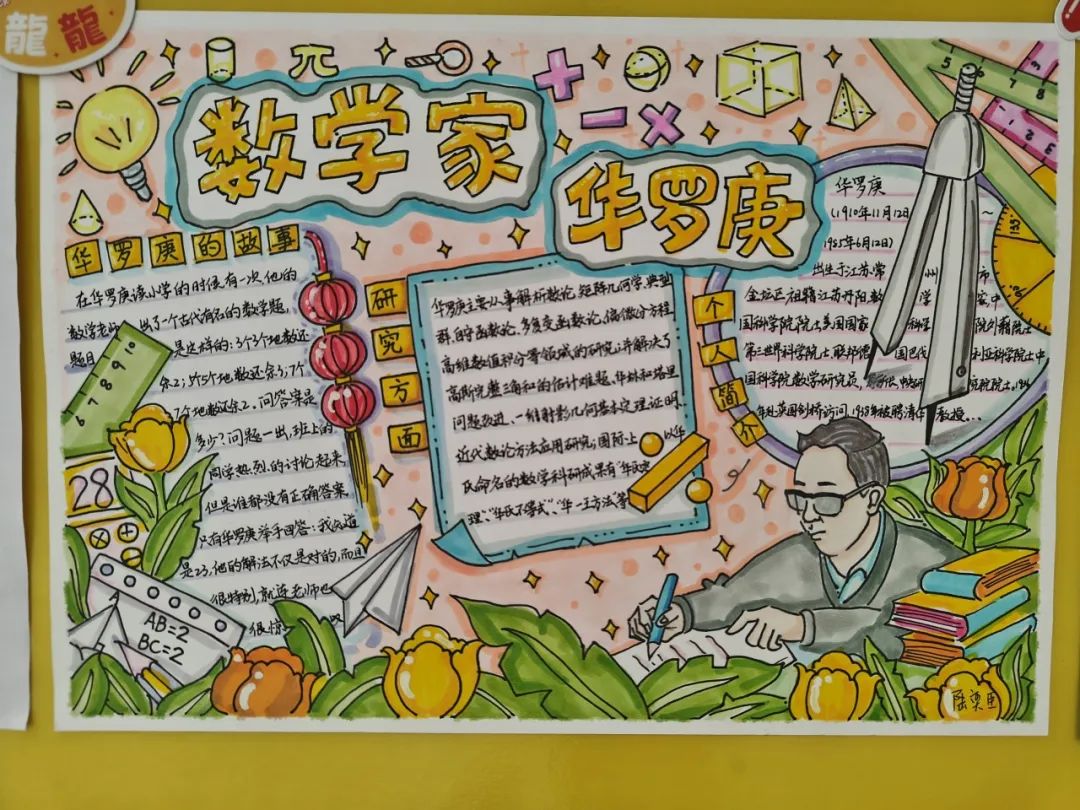 龍 龍
数学家
华罗庚
华罗庚的故事
在华罗庚读小学的时候有一次,他的
数学老师 出了一个古代有名的数学题,
题目 是这样的:3个3个地数还
余2;5个5个地数还余3;7个
7个地数还余2。问答案是
多少?问题一出,班上的
同学热烈的讨论起来,
但是谁都没有正确答案
只有华罗庚举手回答:我知道
是23,他的解法不仅是对的,而且
很特别,就连老师也
很惊 叹
研究方面
华罗庚主要从事解析数论,矩阵几何学,典型
群,自守函数论,多复变函数论,偏微分方程
高维数值积分等领域的研究;并解决了
高斯完整三角和的估计难题、华林和塔里
问题改进、一维射影几何基本定理证明、
近代数论方法应用研究;国际上 以华
氏命名的数学科研成果有“华氏定
理”“华氏不等式”、“华—王方法”等
个人简介
华罗庚
(1910年11月12日 ~
1985年6月12日)
出生于江苏常 州 市
金坛区,祖籍江苏丹阳,数 学 家,中
国科学院院士,美国国家 科学 院外籍院士
第三世界科学院士,联邦德 国巴伐 利亚科学院士中
国科学院数学研究员, 究院院士,1936
年赴英国剑桥访问,1938年被聘清华 教授...
5 6 7 8
6 7 8 9 10
28
AB=2
BC=2